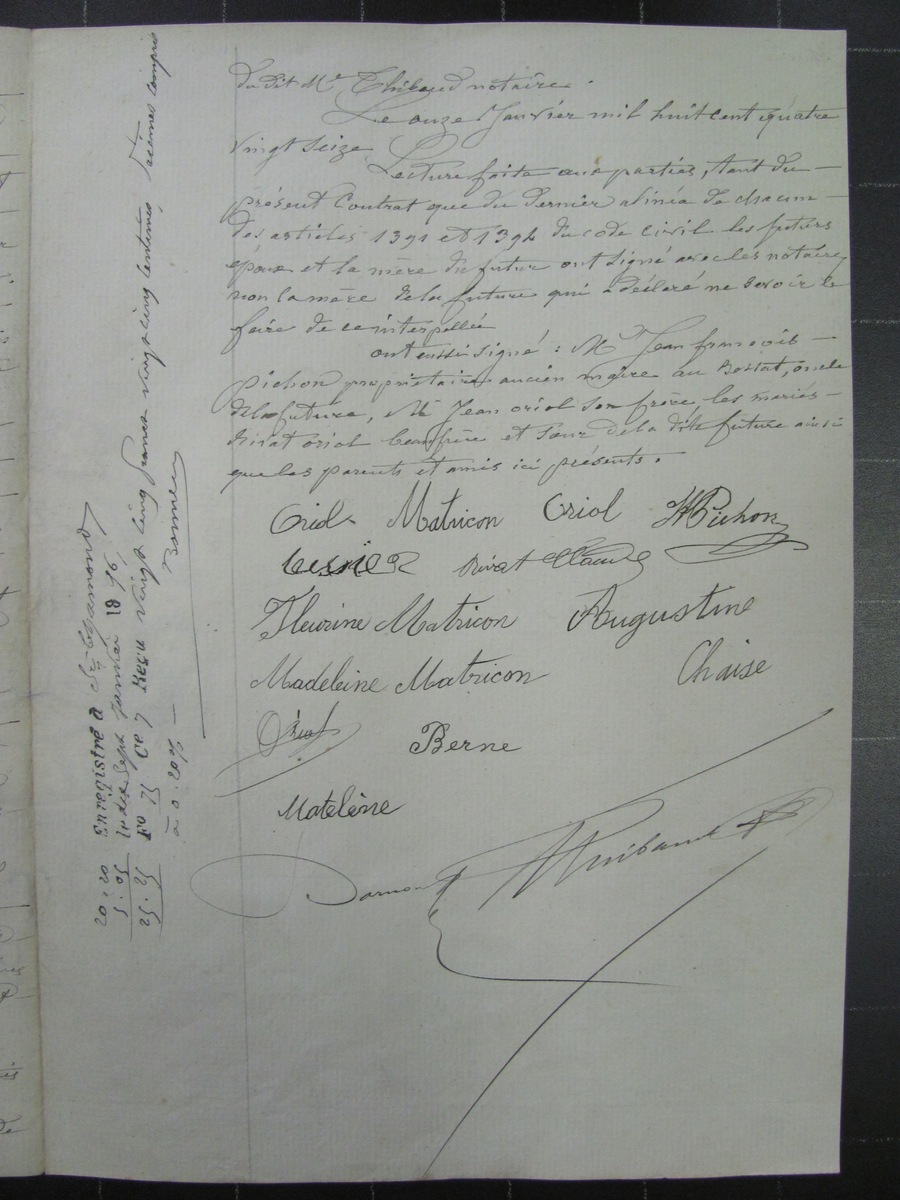 du dit Me Thibaud notaire.
Le onze Janvier mil huit cent quatre
vingt seize
Lecture faite aux parties, tant du
présent Contrat que du dernier alinéa de chacun
des articles 1391 et 1394 du code civil les futurs
époux et la mère du futur ont signé avec les notaires
non la mère de la future qui a déclaré ne savoir le
faire de ce interpellée
ont aussi signé : Mr Jean françois
Pichon propriétaire ancien maire au Bessat, oncle
de la future, Mr Jean oriol son frère les mariés
Rivat oriol beaufrère et sœur de la dite future ainsi
que les parents et amis ici présents.
Oriol Matricon Oriol Pichon
Rivat Claude
Fleurine Matricon Augustine
Madeleine Matricon Chaise
Oriol Berne
Matelène
Thibaud
Enregistré à St Chamond
le dix sept Janvier 1896,
Fo 75 Ce 7 Reçu vingt cinq francs vingt cinq centimes, Décimes compris
à 0.20%
20.20
5.05
25.25